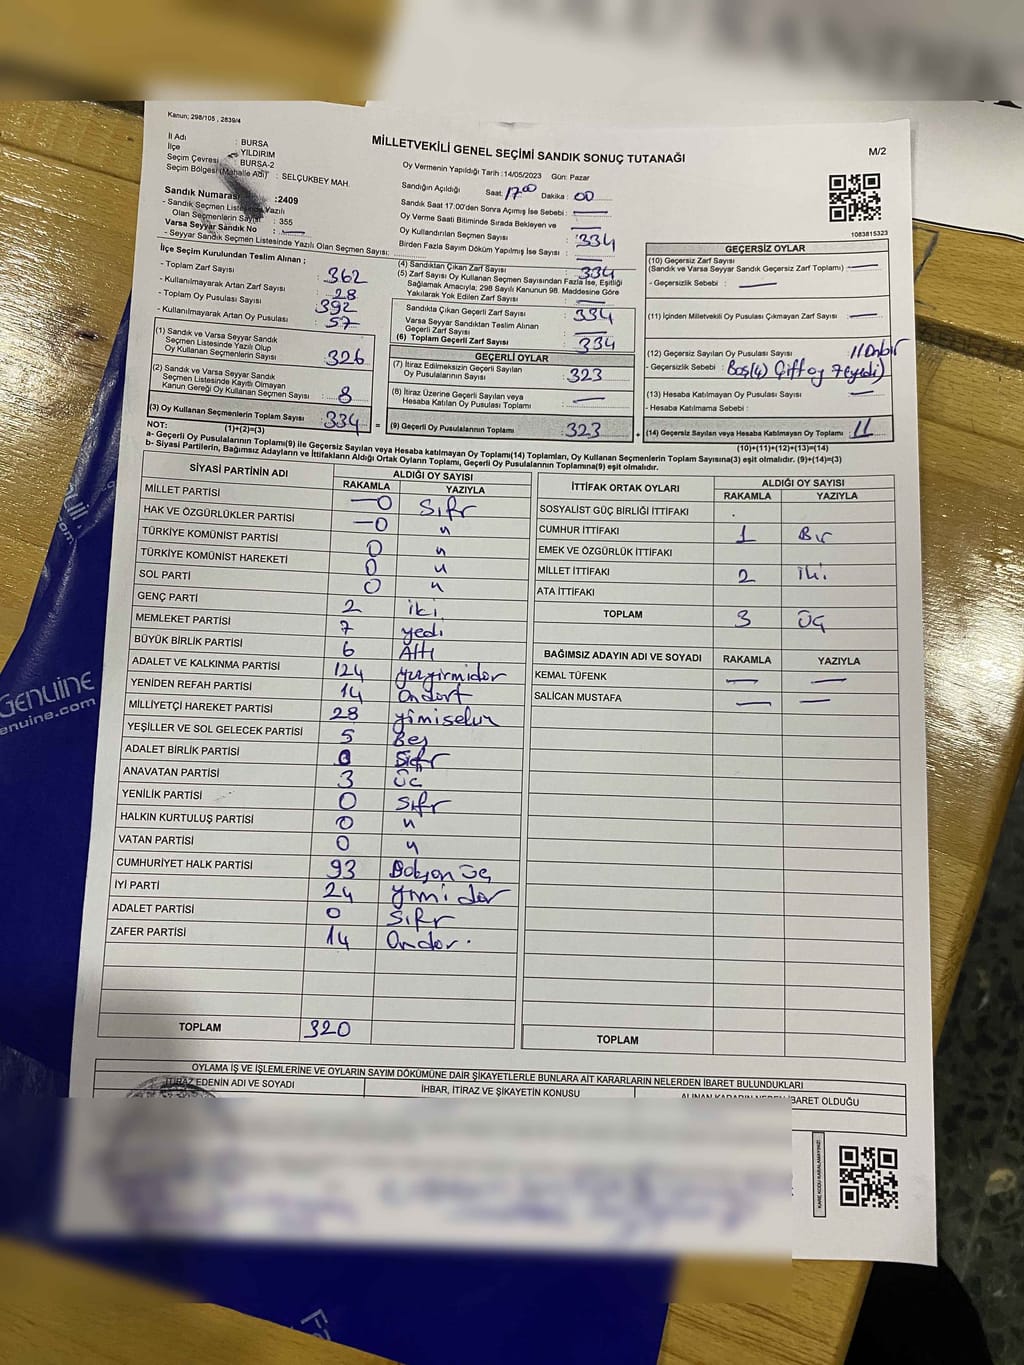 Kanun; 298/105 , 2839/4
MİLLETVEKİLİ GENEL SEÇİMİ SANDIK SONUÇ TUTANAĞI
M/2
İl Adı : BURSA
İlçe : YILDIRIM
Seçim Çevresi : BURSA-2
Seçim Bölgesi (Mahalle Adı) : SELÇUKBEY MAH.
Sandık Numarası :2409
- Sandık Seçmen Listesinde Yazılı
Olan Seçmenlerin Sayısı : 355
Varsa Seyyar Sandık No : —
- Seyyar Sandık Seçmen Listesinde Yazılı Olan Seçmen Sayısı:
Oy Vermenin Yapıldığı Tarih :14/05/2023 Gün: Pazar
Sandığın Açıldığı Saat: 17.00 Dakika : 00
Sandık Saat 17:00'den Sonra Açımış İse Sebebi : —
Oy Verme Saati Bitiminde Sırada Bekleyen ve
Oy Kullandırılan Seçmen Sayısı : 334
Birden Fazla Sayım Döküm Yapılmış İse Sayısı : —
1083815323
İlçe Seçim Kurulundan Teslim Alınan ;
- Toplam Zarf Sayısı : 362
- Kullanılmayarak Artan Zarf Sayısı : 28
- Toplam Oy Pusulası Sayısı : 392
- Kullanılmayarak Artan Oy Pusulası : 57
(1) Sandık ve Varsa Seyyar Sandık
Seçmen Listesinde Yazılı Olup
Oy Kullanan Seçmenlerin Sayısı : 326
(2) Sandık ve Varsa Seyyar Sandık
Seçmen Listesinde Kayıtlı Olmayan
Kanun Gereği Oy Kullanan Seçmen Sayısı : 8
(3) Oy Kullanan Seçmenlerin Toplam Sayısı : 334
(4) Sandıktan Çıkan Zarf Sayısı : 334
(5) Zarf Sayısı Oy Kullanan Seçmen Sayısından Fazla İse, Eşitliği
Sağlamak Amacıyla; 298 Sayılı Kanunun 98. Maddesine Göre
Yakılarak Yok Edilen Zarf Sayısı : —
Sandıkta Çıkan Geçerli Zarf Sayısı : 334
Varsa Seyyar Sandıktan Teslim Alınan
Geçerli Zarf Sayısı : —
(6) Toplam Geçerli Zarf Sayısı : 334
GEÇERLİ OYLAR
(7) İtiraz Edilmeksizin Geçerli Sayılan
Oy Pusulalarının Sayısı : 323
(8) İtiraz Üzerine Geçerli Sayılan veya
Hesaba Katılan Oy Pusulası Toplamı : —
= (9) Geçerli Oy Pusulalarının Toplamı : 323
GEÇERSİZ OYLAR
(10) Geçersiz Zarf Sayısı
(Sandık ve Varsa Seyyar Sandık Geçersiz Zarf Toplamı) : —
- Geçersizlik Sebebi : —
(11) İçinden Milletvekili Oy Pusulası Çıkmayan Zarf Sayısı : —
(12) Geçersiz Sayılan Oy Pusulası Sayısı : 11 Onbir
- Geçersizlik Sebebi : Boş(4) Çift oy 7(yedi)
(13) Hesaba Katılmayan Oy Pusulası Sayısı : —
- Hesaba Katılmama Sebebi :
+ (14) Geçersiz Sayılan veya Hesaba Katılmayan Oy Toplamı : 11
NOT: (1)+(2)=(3) (10)+(11)+(12)+(13)=(14)
a- Geçerli Oy Pusulalarının Toplamı(9) ile Geçersiz Sayılan veya Hesaba Katılmayan Oy Toplamı(14) Toplamları, Oy Kullanan Seçmenlerin Toplam Sayısına(3) eşit olmalıdır. (9)+(14)=(3)
b- Siyasi Partilerin, Bağımsız Adayların ve İttifakların Aldığı Oyların Toplamı, Geçerli Oy Pusulalarının Toplamına(9) eşit olmalıdır.
SİYASİ PARTİNİN ADI ALDIĞI OY SAYISI
RAKAMLA YAZIYLA
MİLLET PARTİSİ —0 Sıfır
HAK VE ÖZGÜRLÜKLER PARTİSİ —0 "
TÜRKİYE KOMÜNİST PARTİSİ 0 "
TÜRKİYE KOMÜNİST HAREKETİ 0 "
SOL PARTİ 0 "
GENÇ PARTİ 2 iki
MEMLEKET PARTİSİ 7 yedi
BÜYÜK BİRLİK PARTİSİ 6 Altı
ADALET VE KALKINMA PARTİSİ 124 yüzyirmidör
YENİDEN REFAH PARTİSİ 14 Ondört
MİLLİYETÇİ HAREKET PARTİSİ 28 yimisekiz
YEŞİLLER VE SOL GELECEK PARTİSİ 5 Beş
ADALET BİRLİK PARTİSİ 0 Sıfır
ANAVATAN PARTİSİ 3 üç
YENİLİK PARTİSİ 0 Sıfır
HALKIN KURTULUŞ PARTİSİ 0 "
VATAN PARTİSİ 0 "
CUMHURİYET HALK PARTİSİ 93 Doksan üç
İYİ PARTİ 24 yimi dör
ADALET PARTİSİ 0 Sıfır
ZAFER PARTİSİ 14 Ondör.
TOPLAM 320
İTTİFAK ORTAK OYLARI ALDIĞI OY SAYISI
RAKAMLA YAZIYLA
SOSYALİST GÜÇ BİRLİĞİ İTTİFAKI
CUMHUR İTTİFAKI 1 Bir
EMEK VE ÖZGÜRLÜK İTTİFAKI
MİLLET İTTİFAKI 2 iki
ATA İTTİFAKI
TOPLAM 3 üç
BAĞIMSIZ ADAYIN ADI VE SOYADI RAKAMLA YAZIYLA
KEMAL TÜFENK — —
SALİCAN MUSTAFA — —
TOPLAM
OYLAMA İŞ VE İŞLEMLERİNE VE OYLARIN SAYIM DÖKÜMÜNE DAİR ŞİKAYETLERLE BUNLARA AİT KARARLARIN NELERDEN İBARET BULUNDUKLARI
İTİRAZ EDENİN ADI VE SOYADI İHBAR, İTİRAZ VE ŞİKAYETİN KONUSU ALINAN KARARIN NEDEN İBARET OLDUĞU
KARE KODU KARALAMAYINIZ!
Genuine
enuine.com